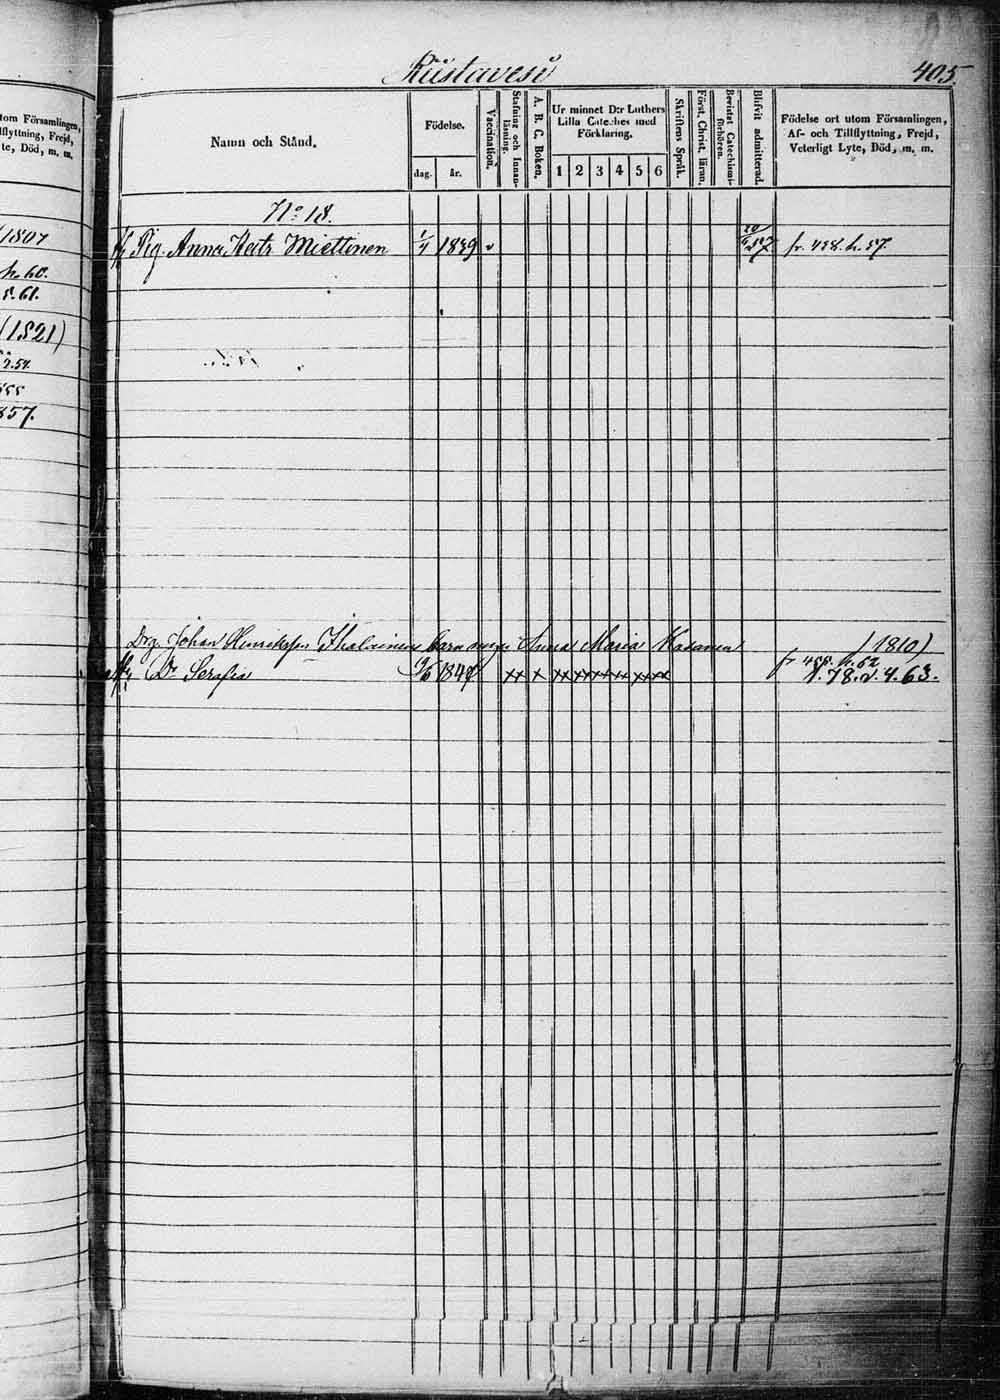 tom Församlingen,
llflyttning, Frejd,
te, Död, m. m.
1807
h. 60.
s. 61.
(1821)
2.57.
555
857.
Riistavesi
405
Namn och Stånd.
Födelse.
dag.
år.
Vaccination.
Stafning och Innan-läsning.
A. B. C. Boken.
Ur minnet D:r Luthers
Lilla Cateches med
Förklaring.
1 2 3 4 5 6
Skriftens Språk.
Först. Christ. läran.
Bevistat Catechismi-förhören.
Blifvit admitterad.
Födelse ort utom Församlingen,
Af- och Tillflyttning, Frejd,
Veterligt Lyte, Död, m. m.
No 18.
Pig. Anna Mietttinen 1839 57 fr. 428. h. 57
Drg. Johan Henriksson Ihalainen barn Anna Maria (1810)
fr. h. 62
Dr Serafia 184 xx x xx xx xx xx xx xx s. 78. 4. 63.